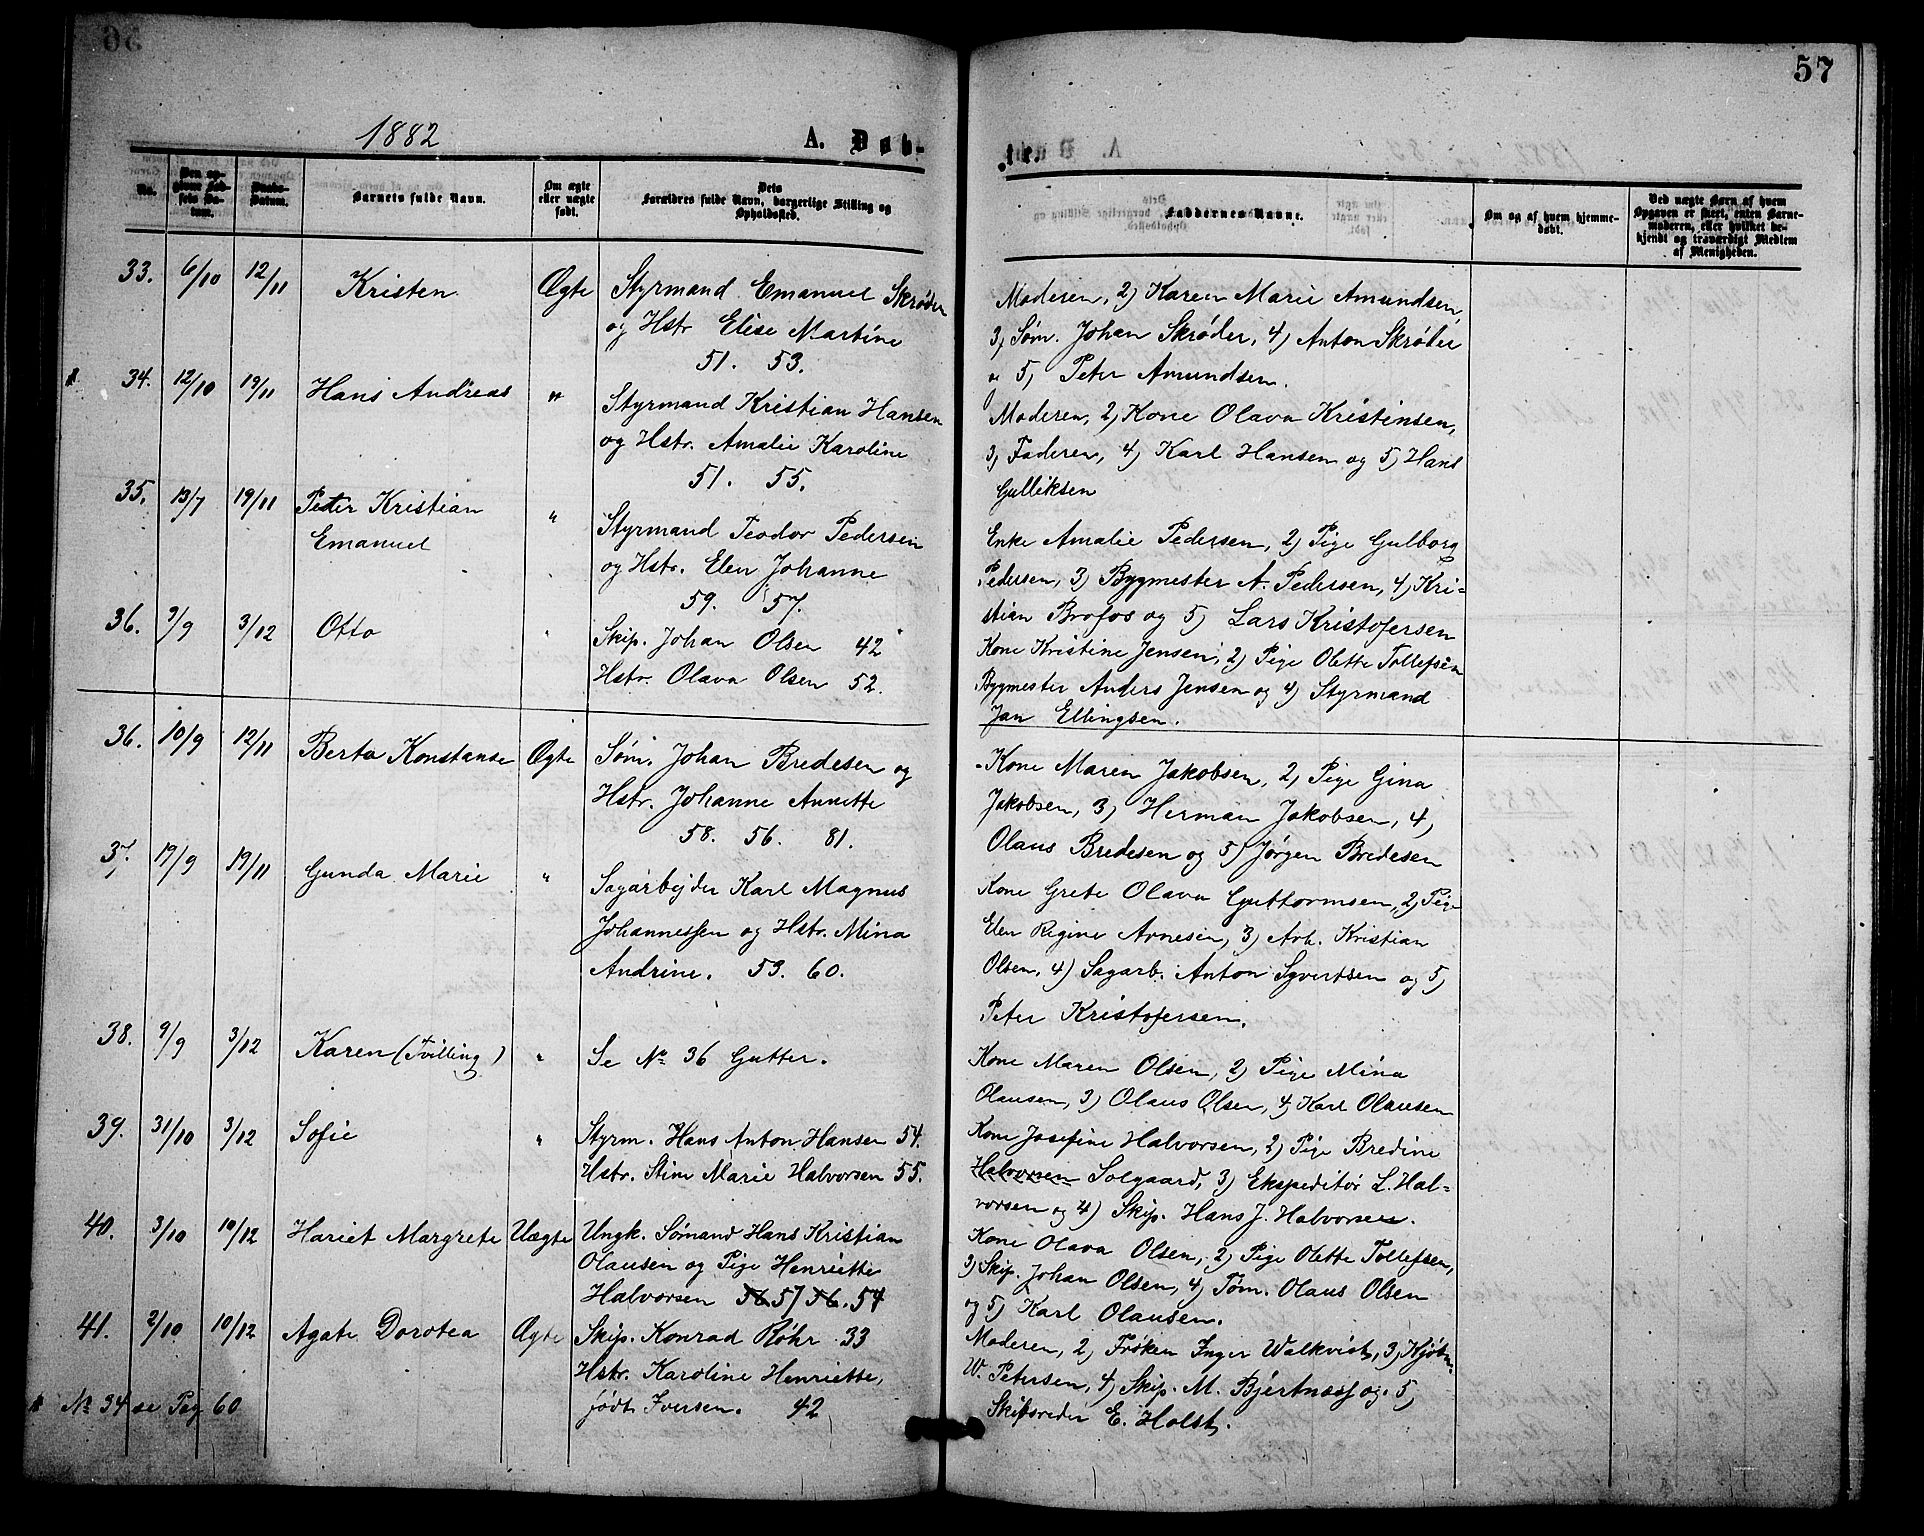 57
1882 A. Døb-
te.
No. Den op-
givne Fød-
sels Da-
tum. Daabs-
Datum. Barnets fulde Navn. Om ægte
eller uægte
født. Dets
Forældres fulde Navn, borgerlige Stilling og
Opholdssted.
Faddernes Navne. Om og af hvem hjemme-
døbt. Ved uægte Børn af hvem
Opgaven er skeet, enten Barne-
moderen, eller hvilket be-
kjendt og troværdigt Medlem
af Menigheden.
33. 6/10 12/11 Kristen Ægte Styrmand Emanuel Skrøder
og Hstr Elise Martine
51. 53.
Moderen, 2) Karen Marie Amundsen,
3) Søm. Johan Skrøder, 4) Anton Skrøder
og 5) Peter Amundsen.
34. 12/10 19/11 Hans Andreas " Styrmand Kristian Hansen
og Hstr. Amalie Karoline
51. 55.
Moderen, 2) Kone Olava Kristinsen,
3) Faderen, 4) Karl Hansen og 5) Hans
Gulliksen
35. 13/7 19/11 Peter Kristian
Emanuel " Styrmand Teodor Pedersen
og Hstr. Elen Johanne
59. 57.
Enke Amalie Pedersen, 2) Pige Gulborg
Pedersen, 3) Bygmester A. Pedersen, 4) Kri-
stian Brofos og 5) Lars Kristofersen
36. 9/9 3/12 Otto " Skip. Johan Olsen 42
Hstr. Olava Olsen 52.
Kone Kristine Jensen, 2) Pige Olette Tollefsen
Bygmester Anders Jensen og 4) Styrmand
Jan Ellingsen.
36. 10/9 12/11 Berta Konstanse Ægte Søm. Johan Bredesen og
Hstr. Johanne Annette
58. 56. 81.
Kone Maren Jakobsen, 2) Pige Gina
Jakobsen, 3) Herman Jakobsen, 4)
Olaus Bredesen og 5) Jørgen Bredesen
37. 19/9 19/11 Gunda Marie " Sagarbejder Karl Magnus
Johannessen og Hstr. Mina
Andrine. 53. 60.
Kone Grete Olava Guttormsen, 2) Pige
Elen Regine Arnesen, 3) Arb. Kristian
Olsen, 4) Sagarb. Anton Syvertsen og 5)
Peter Kristofersen.
38. 9/9 3/12 Karen (Tvilling) " Se No 36 Gutter.
Kone Maren Olsen, 2) Pige Mina
Olausen, 3) Olaus Olsen, 4) Karl Olausen
39. 31/10 3/12 Sofie " Styrm. Hans Anton Hansen 54.
Hstr. Stine Marie Halvorsen 55.
Kone Josefine Halvorsen, 2) Pige Bredine
Halvorsen Solgaard, 3) Ekspeditør L. Hal-
vorsen og 4) Skip. Hans J. Halvorsen.
40. 3/10 10/12 Hariet Margrete Uægte Ungk. Sømand Hans Kristian
Olausen og Pige Henriette
Halvorsen 56. 57 56. 54
Kone Olava Olsen, 2) Pige Olette Tollefsen,
3) Skip. Johan Olsen, 4) Tøm. Olaus Olsen
og 5) Karl Olausen.
41. 2/10 10/12 Agate Dorotea Ægte Skip. Konrad Røhr 33
Hstr. Karoline Henriette,
født Iversen. 42
Moderen, 2) Frøken Inger Walkvist, 3) Kjøbm.
W. Petersen, 4) Skip. M. Bjertnæss og 5)
Skibsreder E. Holst.
No 34 se Pag 60